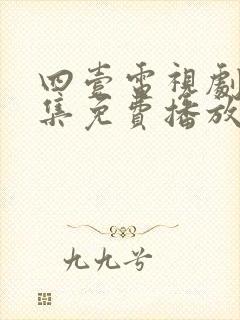 四壹電視劇
集免費播放
九九兮